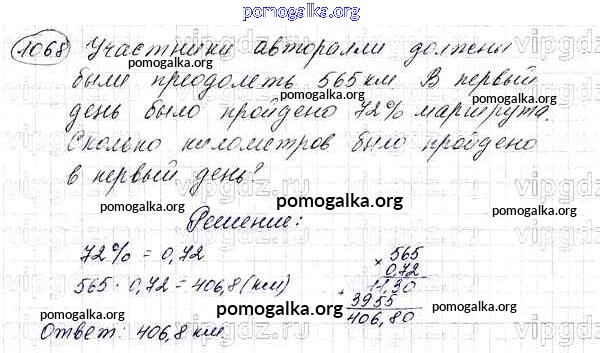 pomogalka.org
1068 Участники авторалли должны
были преодолеть 565 км. В первый
pomogalka.org pomogalka.org
день было пройдено 72% маршрута.
pomogalka.org
Сколько километров было пройдено
pomogalka.org
в первый день?
pomogalka.org pomogalka.org pomogalka.org
Решение:
72% = 0,72
565 · 0,72 = 406,8 (км)
× 565
0,72
11,30
+ 3955
406,80
pomogalka.org
Ответ: 406,8 км.
pomogalka.org
vipgdz.ru